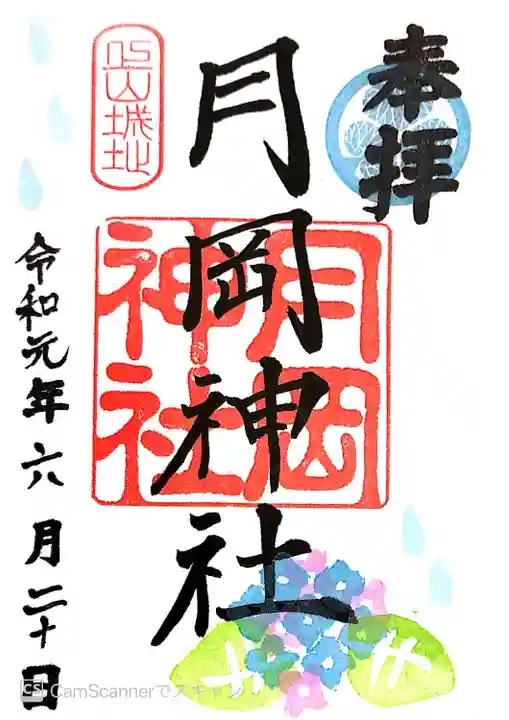 奉拝
月岡神社
月岡
神社
城址
令和元年六月二十日
CS CamScannerでスキャン